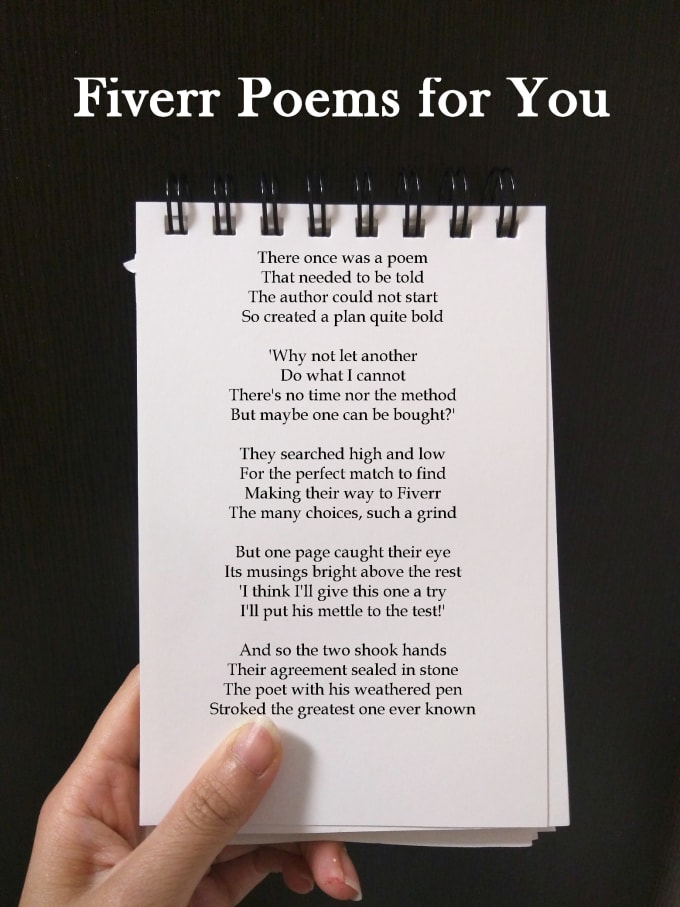 Fiverr Poems for You
There once was a poem
That needed to be told
The author could not start
So created a plan quite bold
'Why not let another
Do what I cannot
There's no time nor the method
But maybe one can be bought?'
They searched high and low
For the perfect match to find
Making their way to Fiverr
The many choices, such a grind
But one page caught their eye
Its musings bright above the rest
'I think I'll give this one a try
I'll put his mettle to the test!'
And so the two shook hands
Their agreement sealed in stone
The poet with his weathered pen
Stroked the greatest one ever known